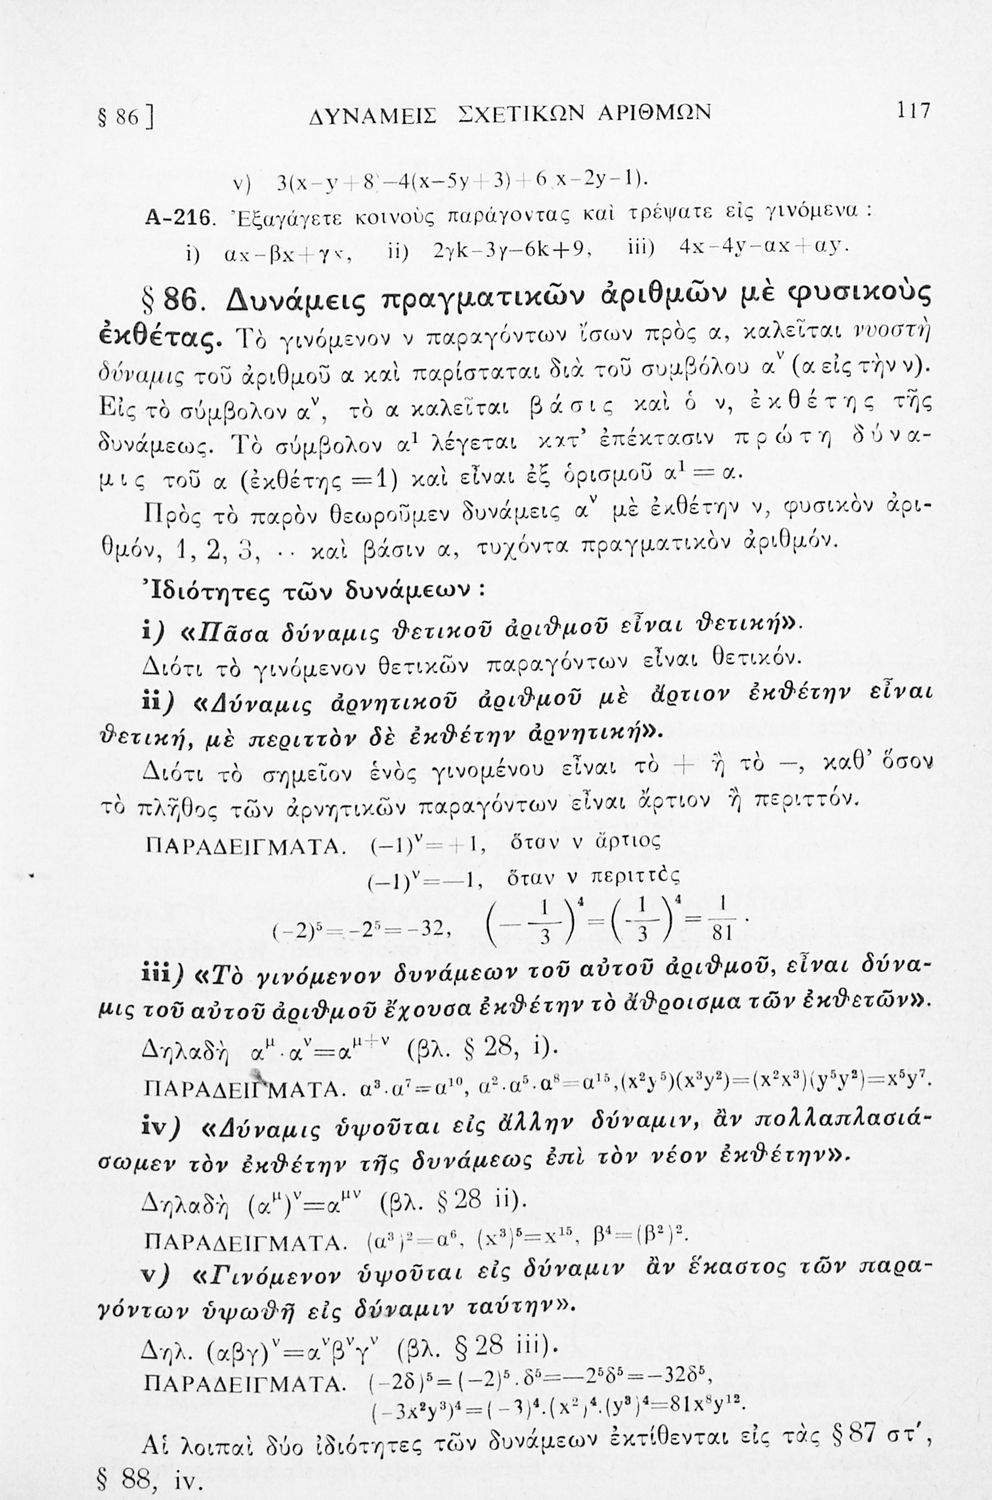 § 86 ] ΔΥΝΑΜΕΙΣ ΣΧΕΤΙΚΩΝ ΑΡΙΘΜΩΝ 117
v) 3(x-y+8)-4(x-5y+3)+6(x-2y-1).
Α-216. Ἐξαγάγετε κοινοὺς παράγοντας καὶ τρέψατε εἰς γινόμενα :
i) αx-βx+γx, ii) 2γk-3γ-6k+9, iii) 4x-4y-αx+αy.
§ 86. Δυνάμεις πραγματικῶν ἀριθμῶν μὲ φυσικοὺς
ἐκθέτας. Τὸ γινόμενον ν παραγόντων ἴσων πρὸς α, καλεῖται νυοστὴ
δύναμις τοῦ ἀριθμοῦ α καὶ παρίσταται διὰ τοῦ συμβόλου αᵛ (α εἰς τὴν ν).
Εἰς τὸ σύμβολον αᵛ, τὸ α καλεῖται βάσις καὶ ὁ ν, ἐκθέτης τῆς
δυνάμεως. Τὸ σύμβολον α¹ λέγεται κατ’ ἐπέκτασιν πρώτη δύνα-
μις τοῦ α (ἐκθέτης =1) καὶ εἶναι ἐξ ὁρισμοῦ α¹ = α.
Πρὸς τὸ παρὸν θεωροῦμεν δυνάμεις αᵛ μὲ ἐκθέτην ν, φυσικὸν ἀρι-
θμόν, 1, 2, 3, ·· καὶ βάσιν α, τυχόντα πραγματικὸν ἀριθμόν.
Ἰδιότητες τῶν δυνάμεων :
i) «Πᾶσα δύναμις θετικοῦ ἀριθμοῦ εἶναι θετική».
Διότι τὸ γινόμενον θετικῶν παραγόντων εἶναι θετικόν.
ii) «Δύναμις ἀρνητικοῦ ἀριθμοῦ μὲ ἄρτιον ἐκθέτην εἶναι
θετική, μὲ περιττὸν δὲ ἐκθέτην ἀρνητική».
Διότι τὸ σημεῖον ἑνὸς γινομένου εἶναι τὸ + ἢ τὸ —, καθ’ ὅσον
τὸ πλῆθος τῶν ἀρνητικῶν παραγόντων εἶναι ἄρτιον ἢ περιττόν.
ΠΑΡΑΔΕΙΓΜΑΤΑ. (-1)ᵛ=+1, ὅταν ν ἄρτιος
(-1)ᵛ=-1, ὅταν ν περιττὸς
(-2)⁵=-2⁵=-32, (-1/3)⁴=(1/3)⁴=1/81.
iii) «Τὸ γινόμενον δυνάμεων τοῦ αὐτοῦ ἀριθμοῦ, εἶναι δύνα-
μις τοῦ αὐτοῦ ἀριθμοῦ ἔχουσα ἐκθέτην τὸ ἄθροισμα τῶν ἐκθετῶν».
Δηλαδὴ α^μ·α^ν=α^(μ+ν) (βλ. § 28, i).
ΠΑΡΑΔΕΙΓΜΑΤΑ. α³.α⁷=α¹⁰, α².α⁵.α⁸=α¹⁵,(x²y⁵)(x³y²)=(x²x³)(y⁵y²)=x⁵y⁷.
iv) «Δύναμις ὑψοῦται εἰς ἄλλην δύναμιν, ἂν πολλαπλασιά-
σωμεν τὸν ἐκθέτην τῆς δυνάμεως ἐπὶ τὸν νέον ἐκθέτην».
Δηλαδὴ (α^μ)^ν=α^(μν) (βλ. § 28 ii).
ΠΑΡΑΔΕΙΓΜΑΤΑ. (α³)²=α⁶, (x³)⁵=x¹⁵, β⁴=(β²)².
v) «Γινόμενον ὑψοῦται εἰς δύναμιν ἂν ἕκαστος τῶν παρα-
γόντων ὑψωθῇ εἰς δύναμιν ταύτην».
Δηλ. (αβγ)ᵛ=αᵛβᵛγᵛ (βλ. § 28 iii).
ΠΑΡΑΔΕΙΓΜΑΤΑ. (-2δ)⁵=(-2)⁵.δ⁵=-2⁵δ⁵=-32δ⁵,
(-3x²y³)⁴=(-3)⁴.(x²)⁴.(y³)⁴=81x⁸y¹².
Αἱ λοιπαὶ δύο ἰδιότητες τῶν δυνάμεων ἐκτίθενται εἰς τὰς § 87 στ′,
§ 88, iv.